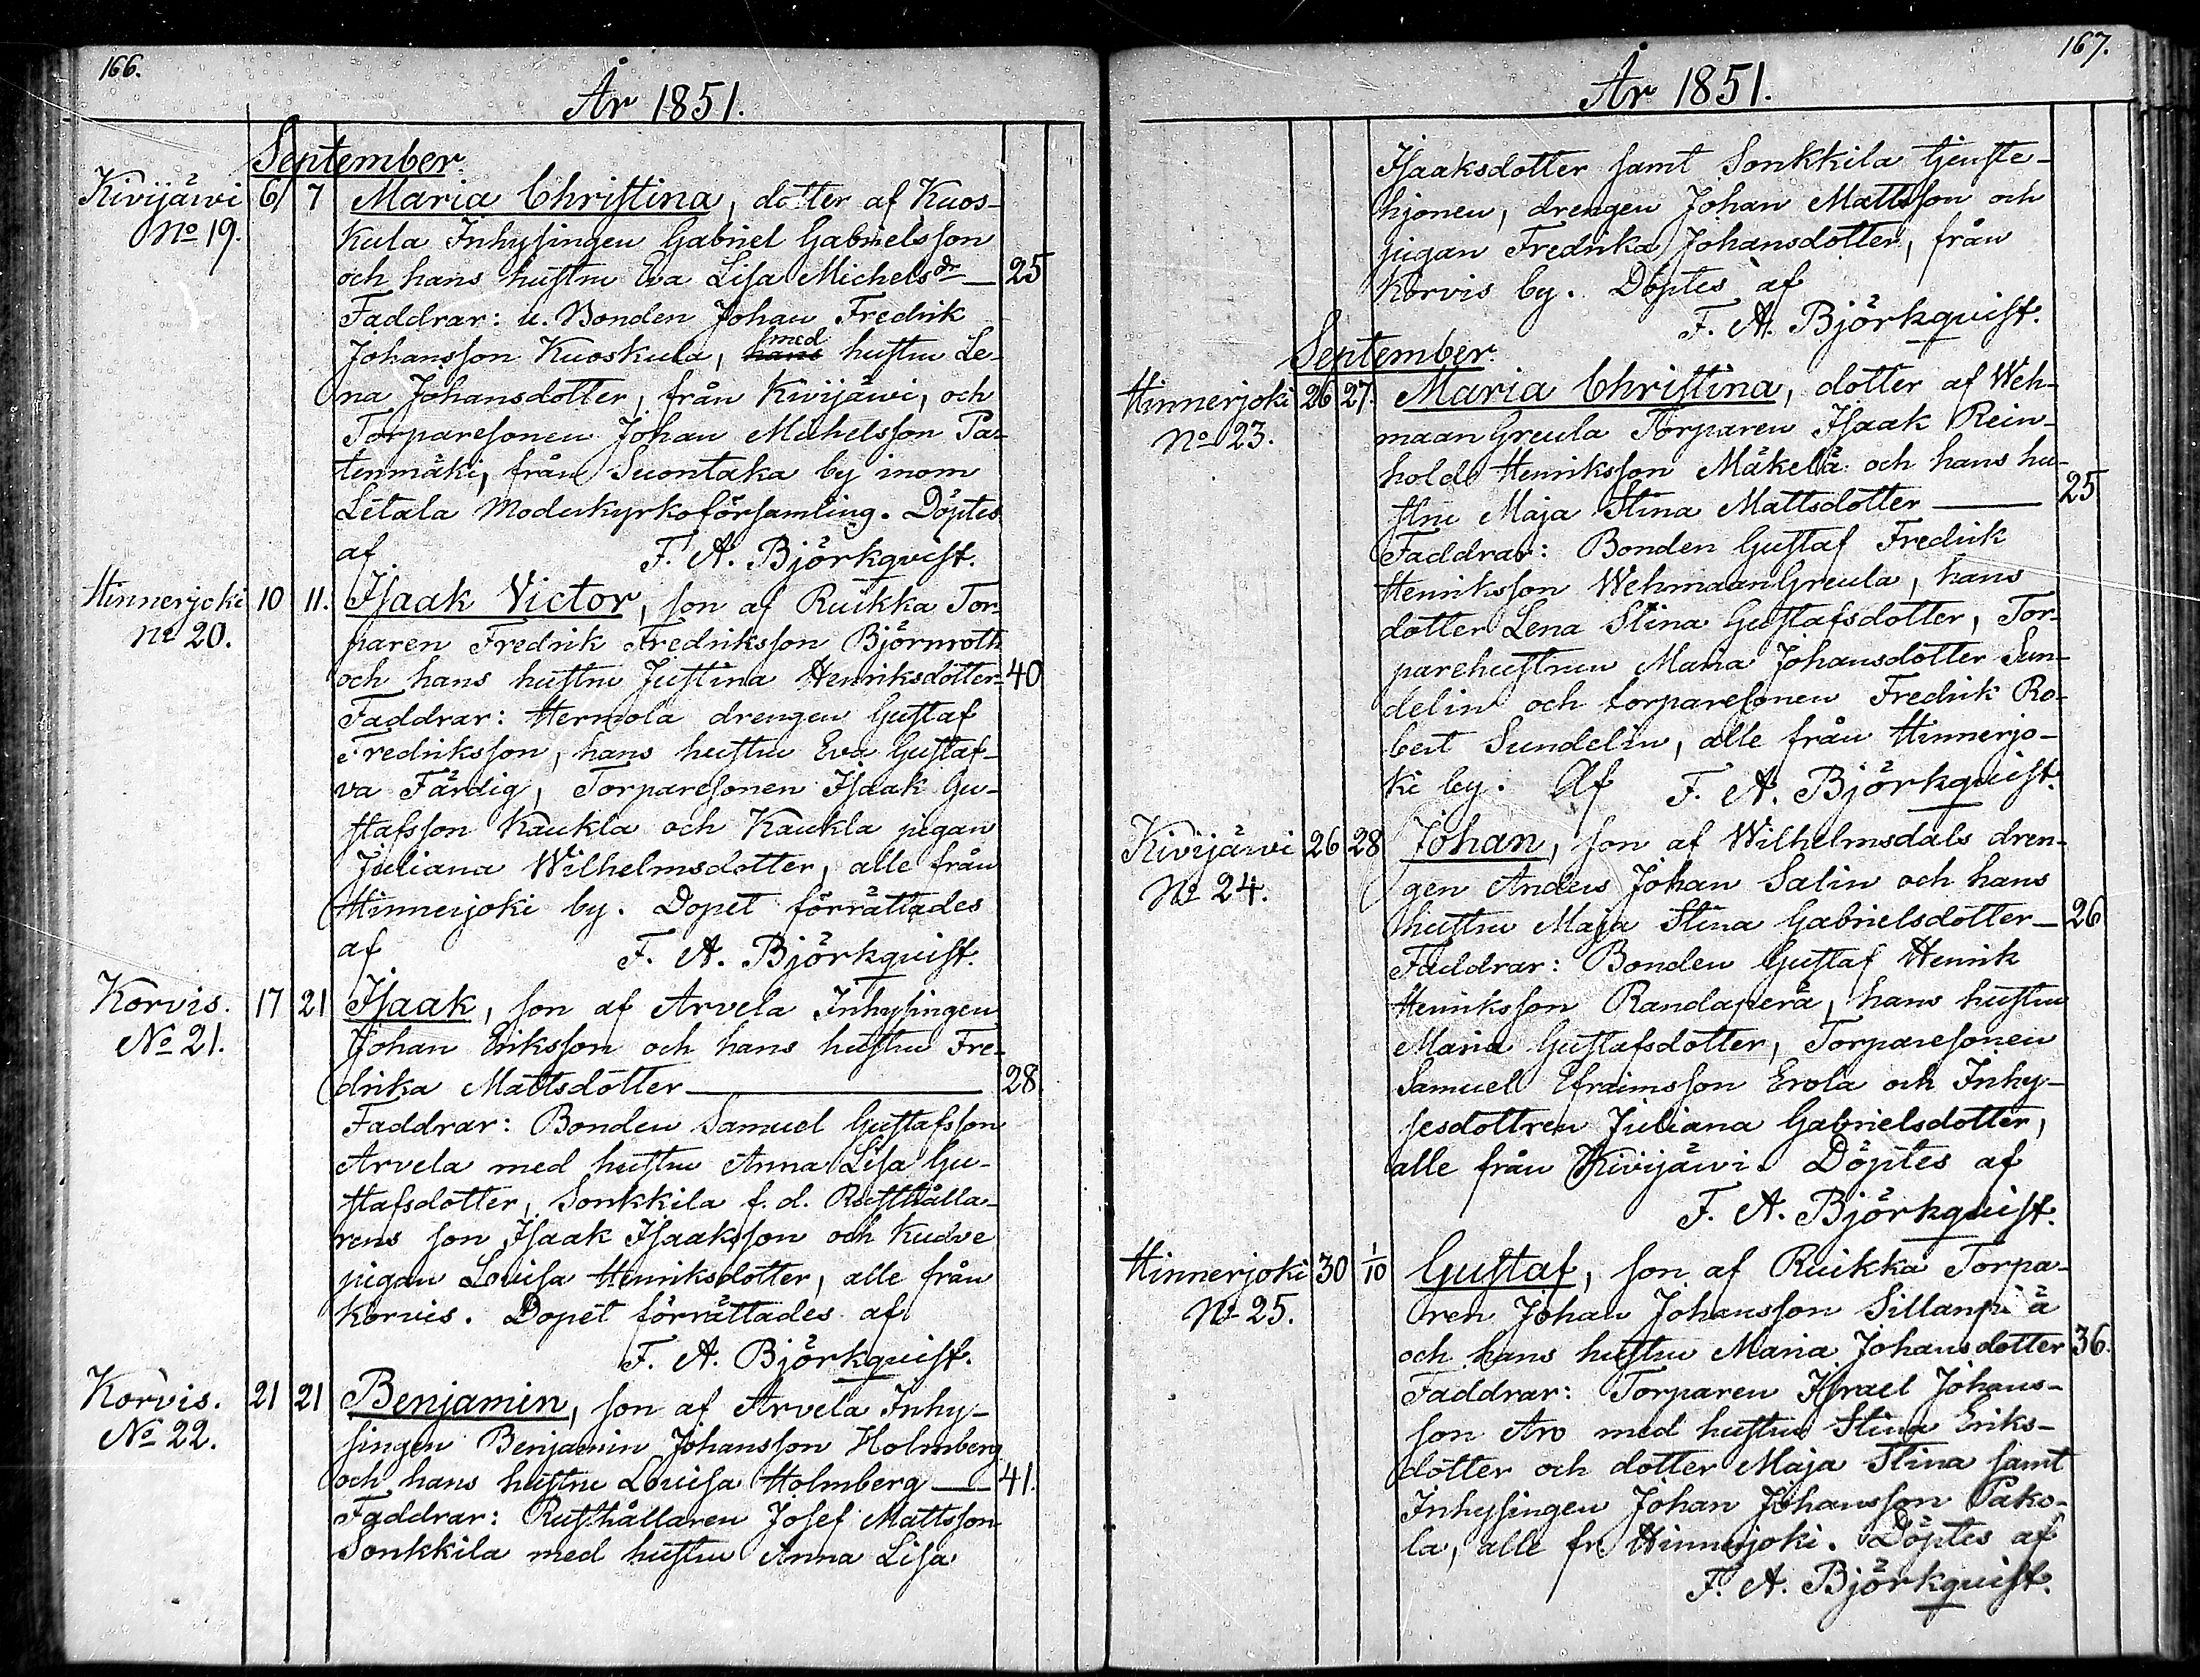 166.
År 1851.
September.
Kivijäwi 6 7 Maria Christina, dotter af Kuos-
No 19. kula Inhysingen Gabriel Gabrielsson
och hans hustru Eva Lisa Michelsdr — 25
Faddrar: u. Bonden Johan Fredrik
Johansson Kuoskula, hans med hustru Le-
na Johansdotter, från Kivijäwi, och
Torparesonen Johan Michelsson Pa-
tenmäki, från Suontaka by inom
Letala Moderkyrkoförsamling. Döptes
af F. A. Björkqvist.
Hinnerjoki 10 11. Isaak Victor, son af Ruikka Tor-
No 20. paren Fredrik Fredriksson Björnroth
och hans hustru Justina Henriksdotter- 40
Faddrar: Hermola drengen Gustaf
Fredriksson, hans hustru Eva Gustaf-
va Färdig, Torparesonen Isaak Gu-
stafsson Kaukla och Kaukla pigan
Juliana Wilhelmsdotter, alle från
Hinnerjoki by. Dopet förrättades
af F. A. Björkquist.
Korvis. 17 21 Isaak, son af Arvela Inhysingen
No 21. Johan Eriksson och hans hustru Fre-
drika Mattsdotter — 28.
Faddrar: Bonden Samuel Gustafsson
Arvela med hustru Anna Lisa Gu-
stafsdotter, Sonkkila f. d. Rusthålla-
rens son Isaak Isaaksson och Kudve
pigan Lovisa Henriksdotter, alle från
Korvis. Dopet förrättades af
F. A. Björkquist.
Korvis. 21 21 Benjamin, son af Arvela Inhy-
No 22. singen Benjamin Johansson Holmberg
och hans hustru Lovisa Holmberg — 41.
Faddrar: Rusthållaren Josef Mattsson
Sonkkila med hustru Anna Lisa
167.
År 1851.
Isaaksdotter samt Sonkkila tjenste-
hjonen, drengen Johan Mattsson och
pigan Fredrika Johansdotter, från
Korvis by. Döptes af
F. A. Björkquist.
September.
Hinnerjoki 26 27. Maria Christina, dotter af Weh-
No 23. maanGreula Torparen Isaak Rein-
hold Henriksson Mäkelä och hans hu-
stru Maja Stina Mattsdotter — 25
Faddrar: Bonden Gustaf Fredrik
Henriksson WehmaanGreula, hans
dotter Lena Stina Gustafsdotter, Tor-
parehustrun Maria Johansdotter Sun-
delin och torparesonen Fredrik Ro-
bert Sundelin, alle från Hinnerjo-
ki by. Af F. A. Björkquist.
Kivijäwi 26 28 Johan, son af Wilhelmsdals dren-
No 24. gen Anders Johan Salin och hans
hustru Maja Stina Gabrielsdotter — 26
Faddrar: Bonden Gustaf Henrik
Henriksson Randaperä, hans hustru
Maria Gustafsdotter, Torparesonen
Samuel Efraimsson Erola och Inhy-
sesdottren Juliana Gabrielsdotter,
alle från Kivijäwi. Döptes af
F. A. Björkquist.
Hinnerjoki 30 1/10 Gustaf, son af Ruikka Torpa-
No 25. ren Johan Johansson Sillanpää
och hans hustru Maria Johansdotter 36.
Faddrar: Torparen Israel Johans-
son Aro med hustru Stina Eriks-
dotter och dotter Maja Stina samt
Inhysingen Johan Johansson Pako-
la, alle fr. Hinnerjoki. Döptes af
F. A. Björkquist.